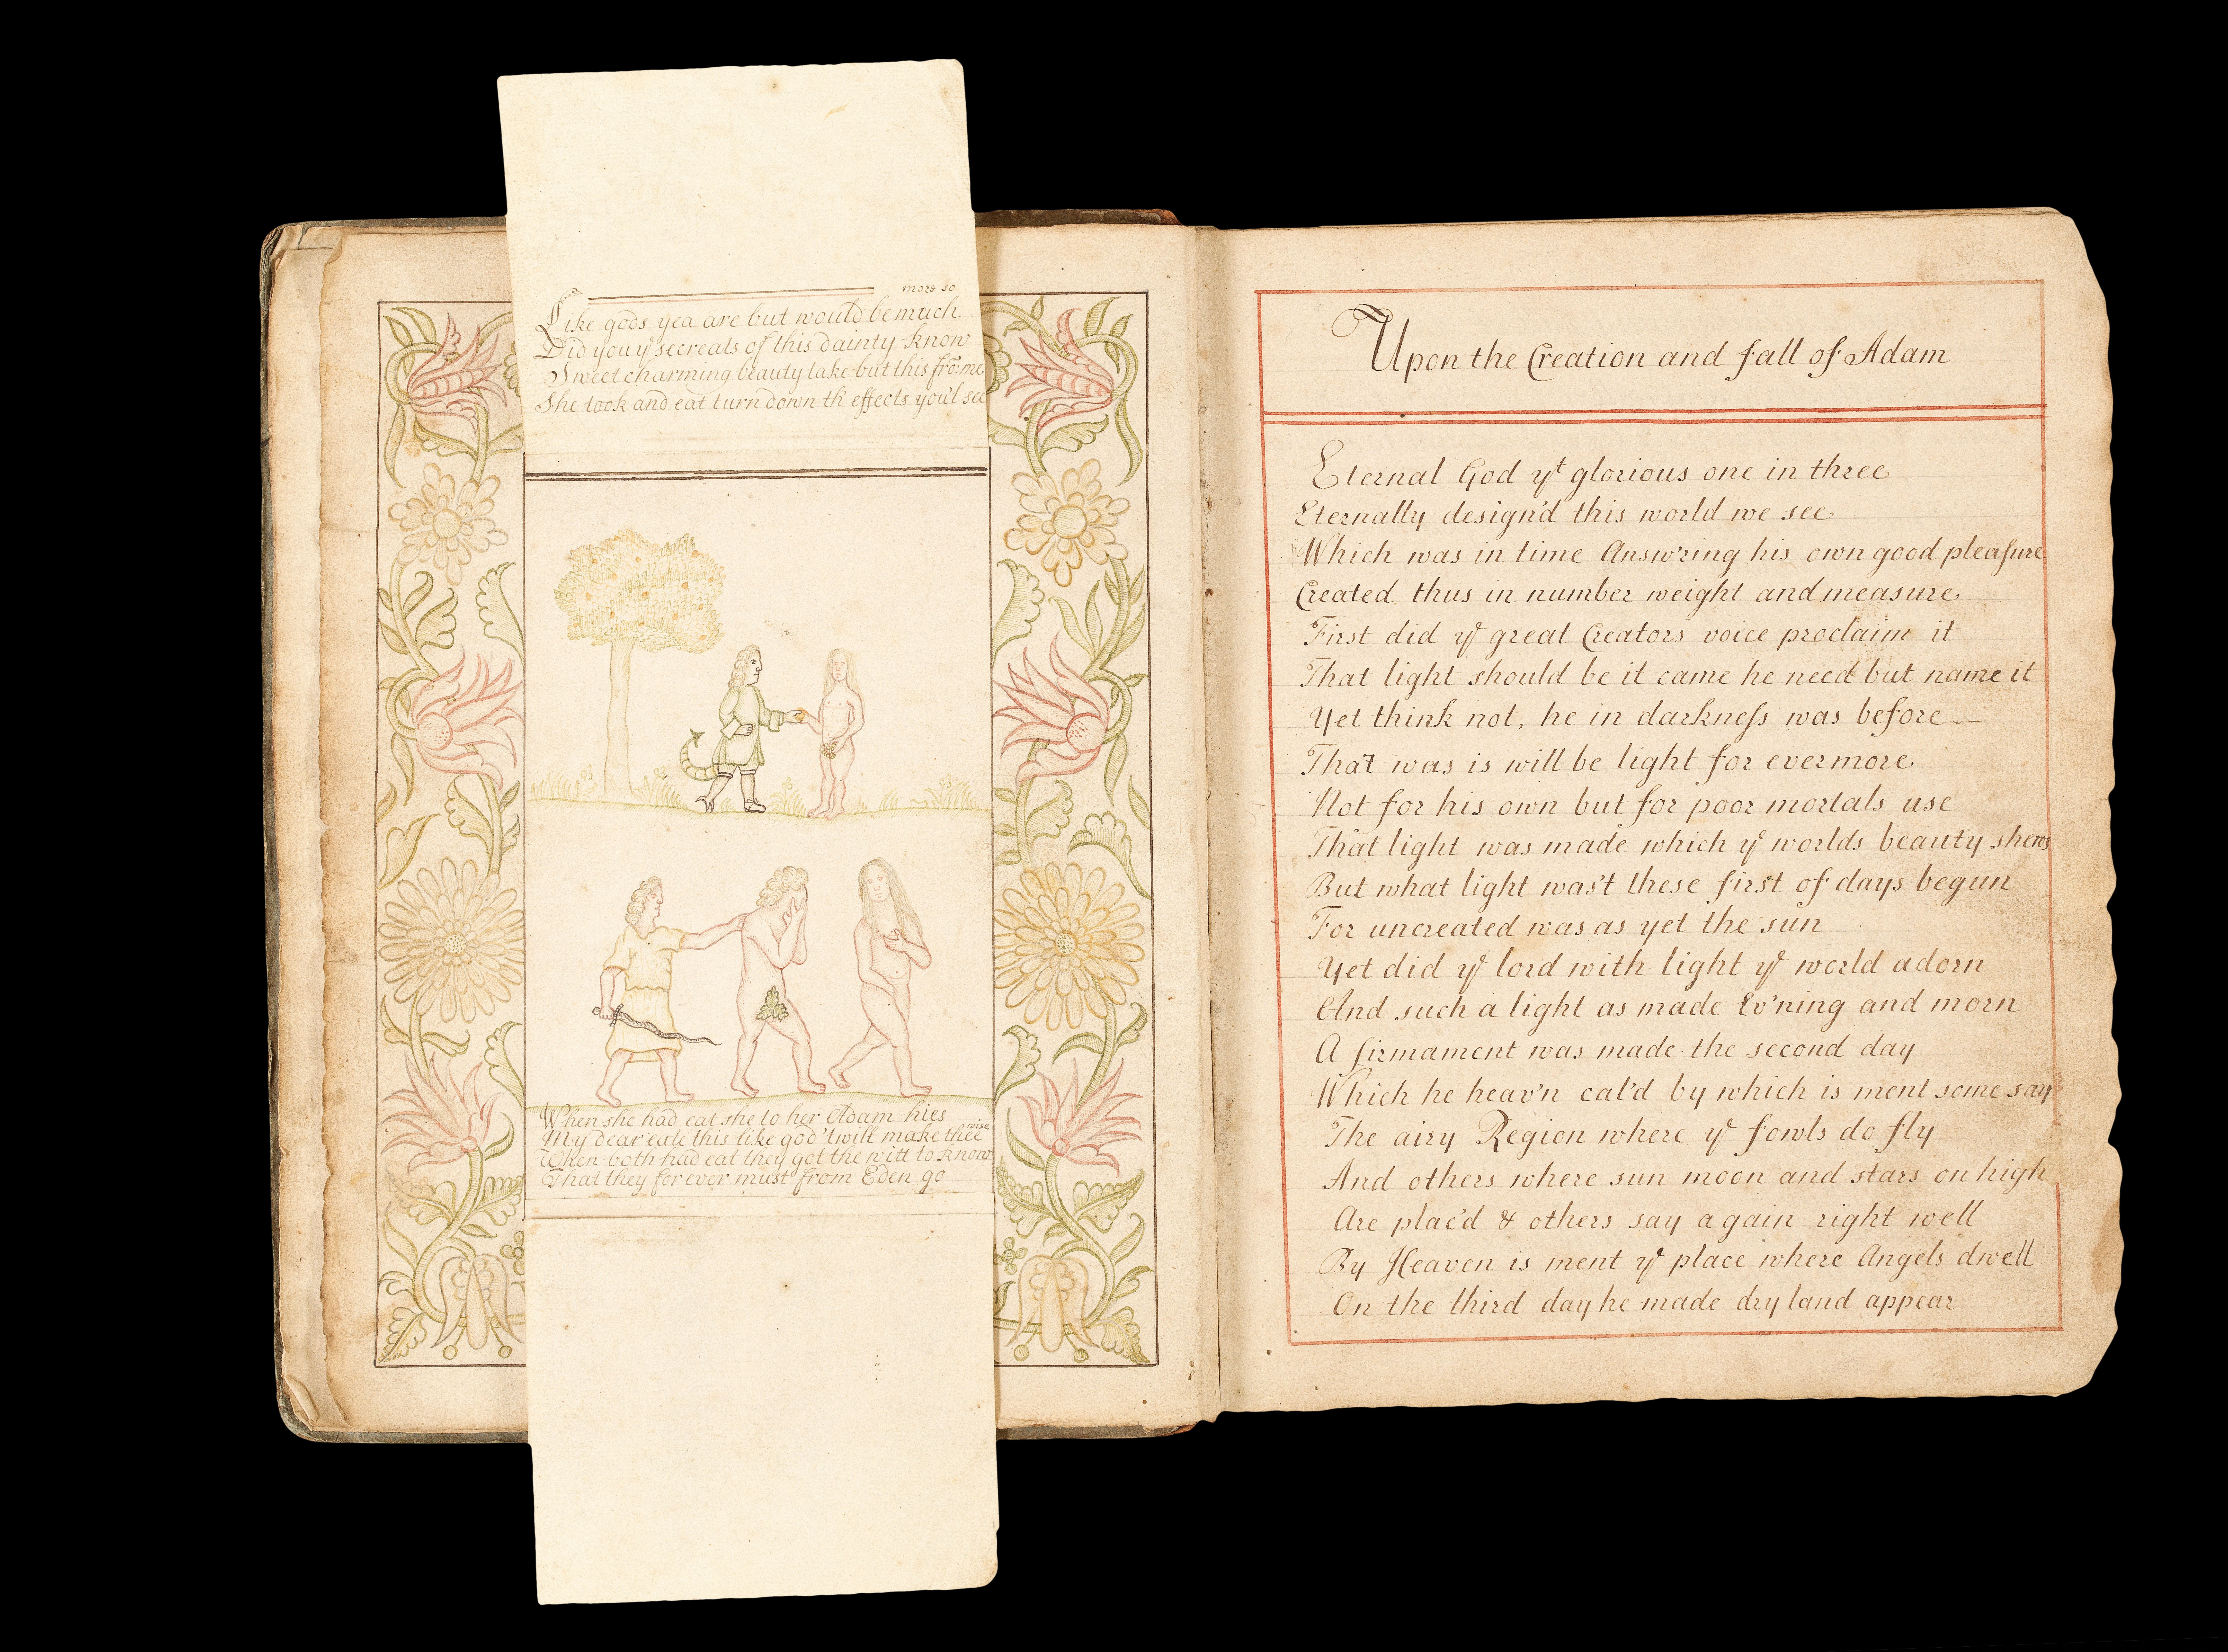 more so
Like gods yea are but would be much
Did you yͤ secreats of this dainty know
Sweet charming beauty take but this fro: me
She took and eat turn down th' effects you'l see
When she had eat she to her Adam hies
My dear eate this like god 'twill make thee wise
When both had eat they got the witt to know
That they for ever must from Eden go
Upon the Creation and fall of Adam
Eternal God yͭ glorious one in three
Eternally design'd this world we see
Which was in time Answ'ring his own good pleaſure
Created thus in number weight and measure.
First did yͤ great Creators voice proclaim it
That light should be it came he need but name it
Yet think not, he in darkneſs was before —
That was is will be light for evermore.
Not for his own but for poor mortals use
That light was made which yͤ worlds beauty shews
But what light was't these first of days begun
For uncreated was as yet the sun
Yet did yͤ lord with light yͤ world adorn
And such a light as made Ev'ning and morn
A firmament was made the second day
Which he heav'n cal'd by which is ment some say
The airy Region where yͤ fowls do fly
And others where sun moon and stars on high
Are plac'd & others say again right well
By Heaven is ment yͤ place where Angels dwell
On the third day he made dry land appear